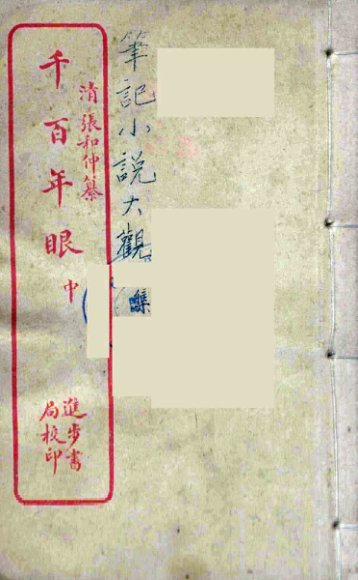 筆記小說大觀
集
清張和仲纂
千百年眼 中
進步書
局校印